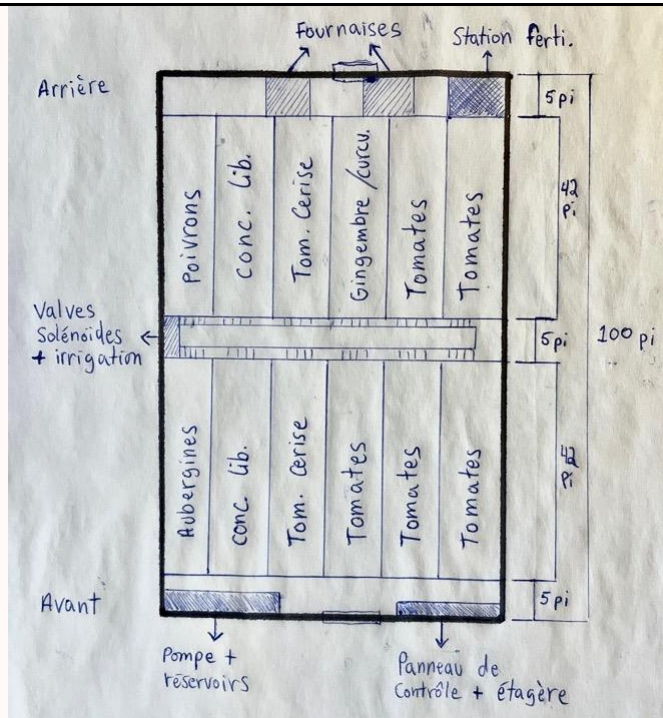 Fournaises
Station ferti.
Arrière
5 pi
Poivrons
conc. Lib.
Tom. Cerise
Gingembre/curcu.
Tomates
Tomates
42 pi
Valves
Solénoïdes
+ irrigation
5 pi
100 pi
Aubergines
conc. Lib.
Tom. Cerise
Tomates
Tomates
Tomates
42 Pi
Avant
5 pi
Pompe +
réservoirs
Panneau de
Contrôle + étagère